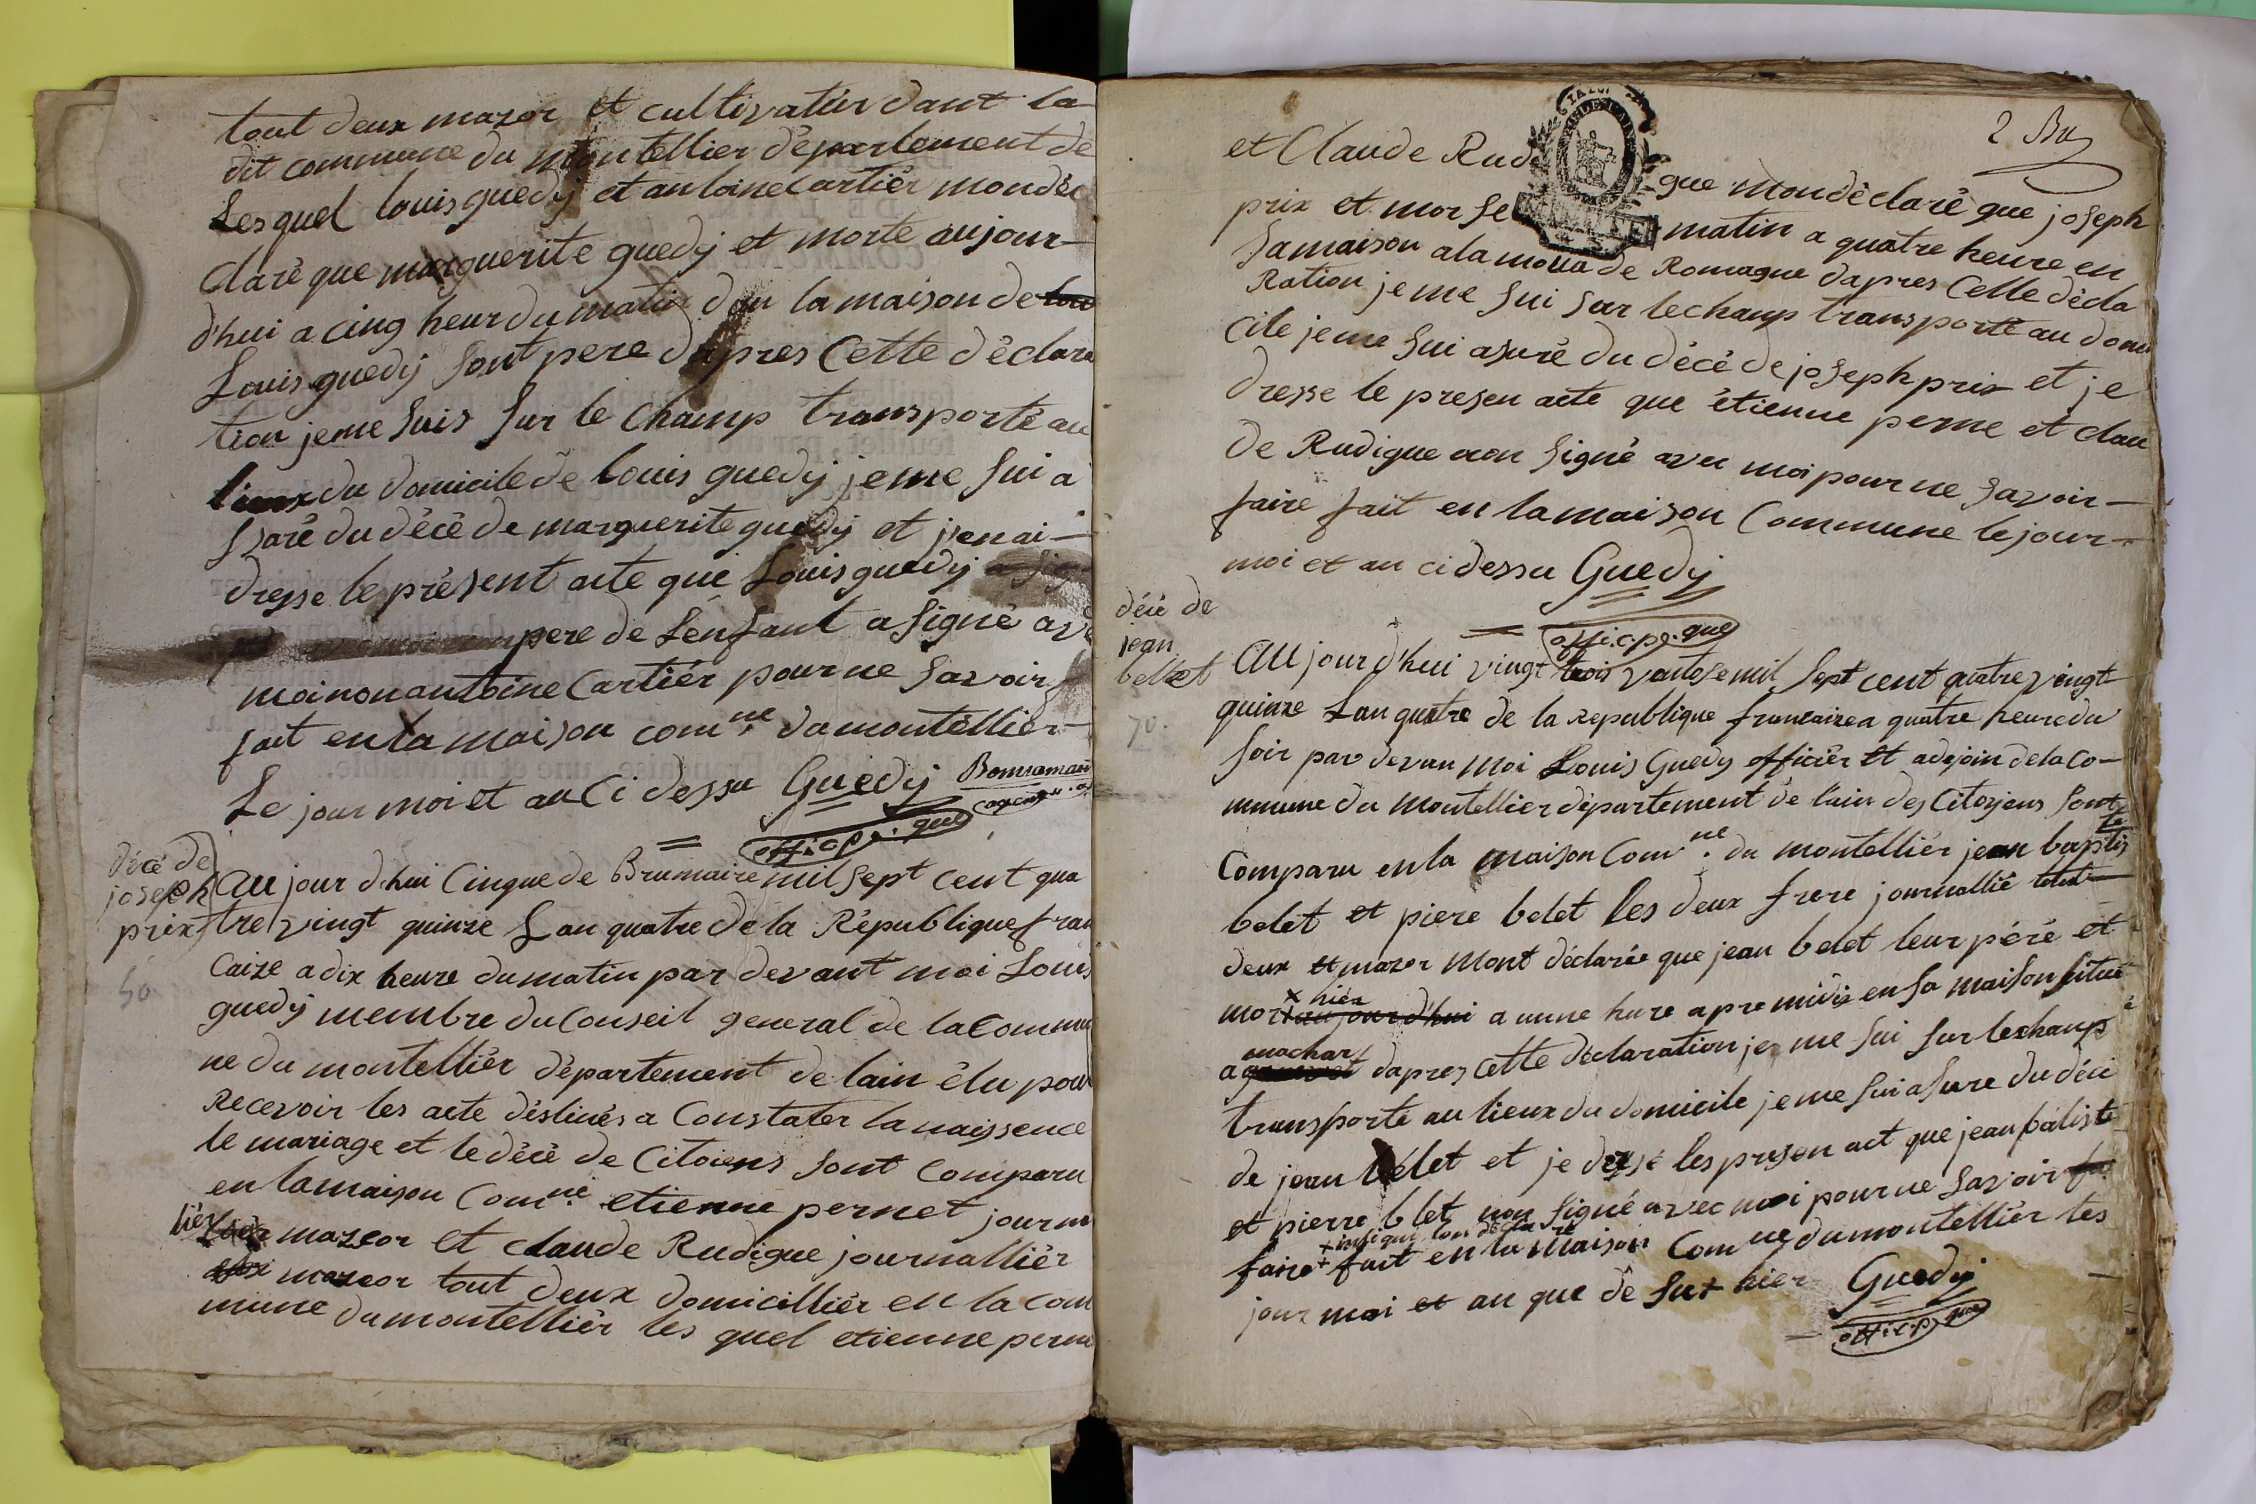 tout deux mazor et cultivatier dant la
dit commune du montellier département de
Les quel louis guedÿ et antoine Cartiér mondéc
claré que marguerite guedÿ et morte aujour-
d'hui a cinq heur du matin dan la maison de
Louis guedÿ sont pere dapres Cette déclara
tion jeme suis sur le champ transporté au
lieux du domicile de louis guedÿ jeme sui a
suré du décé de marguerite guedÿ et j'enai-
dresse le présent acte que Louis guedÿ
pere de Lenfant a signé ave
moi non antoine Cartiér pour ne savoir
fait en la maison comne. du montéllier-
Le jour moi et an Ci dessu Guedÿ Bonnamant
offi.c.pe. que
décé de
joseph
prix
50
AU jour d'hui Cinque de Brumaire mil sept cent qua
tre vingt quinze Lan quatre de la République fran
Caize a dix heure du matin par devant moi Louis
guedÿ membre du Conseil general de la Commu
ne du montelliér département de lain élu pour
Recevoir les acte déstinés a Constater la naissence
le mariage et le décé de Citoiens sont Comparu
en la maison Comne. etienne pernet journa
liér mazeor et claude Rudigue journalliér
mazeor tout deux domicilliér en la com
mune du montelliér les quel etienne perne
2 Bu
et Claude Rudi gue mondéclaré que joseph
prix et mor se matin a quatre heure en
sa maison a la de Romagne dapres Celle décla
Ration je me sui sur le champ transporté au domi
cile je me sui asuré du décé de joseph prix et je
dresse le presen acte que étienne perne et clau
de Rudigue non signé avec moi pour ne savoir-
faire fait en la maison Commune le jour-
moi et an ci dessu Guedÿ
offi.c.pe. que
décé de
jean
bellet
70.
AU jour d'hui vingt trois vantose mil sept cent quatre vingt
quinze Lan quatre de la republique francaize a quatre heure du
soir par devan moi Louis Guedy officiér et adejoin de la Co-
mmune du montellier département de l'ain des Citoyens sont
Comparu en la maison Comne. du montelliér jean baptis te
belet et piere belet les deux frere journallié tout-
deux et mazor mont déclarée que jean belet leur péré et
mort aujourd'hui x hiér a une hure apre midis en sa maison situé
a machar dapres Cette déclaration je me sui sur le champ
transporté au lieux du domicile jeme sui asure du décé
de jean bélet et je dressé les presen act que jean batiste
et pierre blet non signé avec moi pour ne savoir
faire + fait en la maison Comne. du montelliér les
jour moi et an que de sut + hier Guedÿ
offi.c.p. que